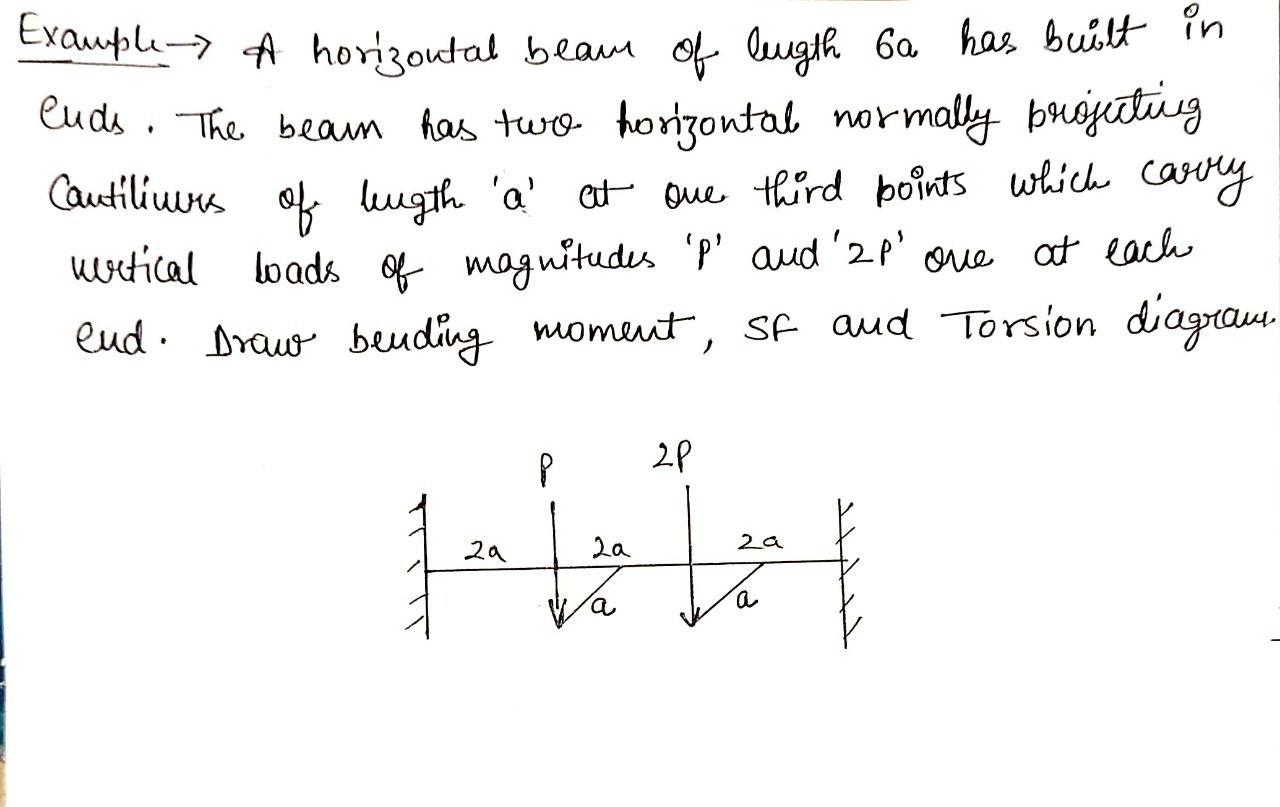 Example→ A horizontal beam of length 6a has built in
ends. The beam has two horizontal normally projecting
Cantilivers of length 'a' at one third points which carry
vertical loads of magnitudes 'P' and '2P' one at each
end. Draw bending moment, SF and Torsion diagram.
P 2P
2a 2a 2a
a a